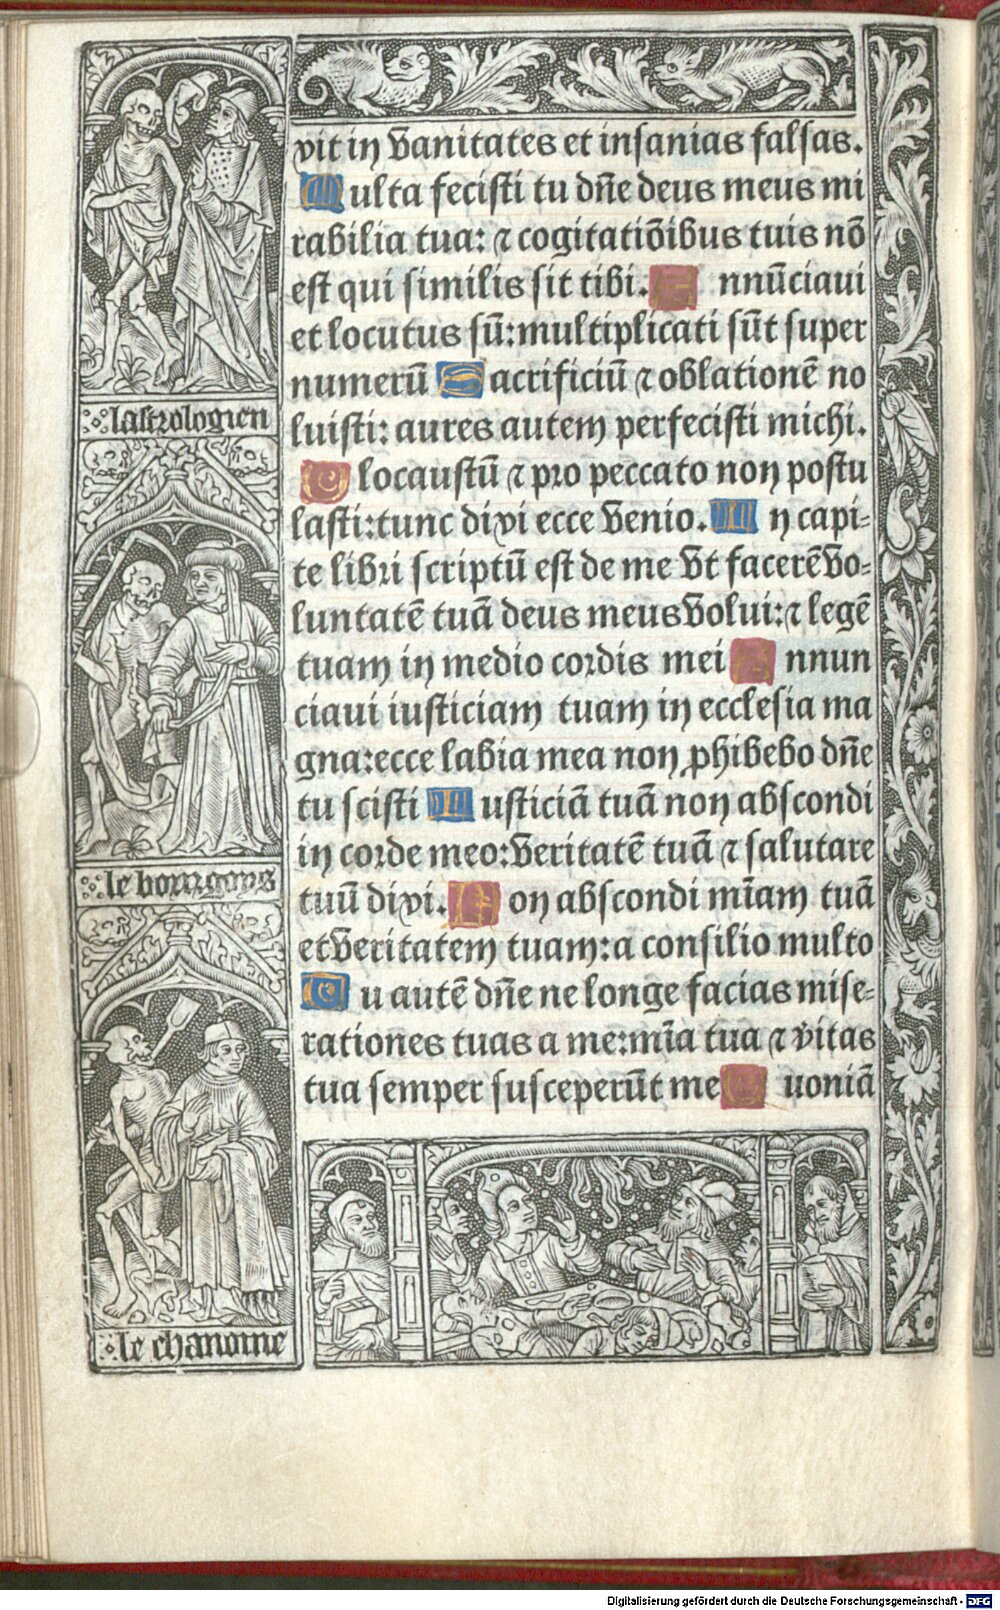 vit in vanitates et insanias falsas.
Multa fecisti tu dñe deus meus mi
rabilia tua: ⁊ cogitatiõibus tuis nõ
est qui similis sit tibi. Annũciaui
et locutus sũ: multiplicati sũt super
numerũ Sacrificiũ ⁊ oblationẽ no
luisti: aures autem perfecisti michi.
Olocaustũ ⁊ pro peccato non postu
lasti: tunc dixi ecce venio. In capi-
te libri scriptũ est de me vt facerẽ vo-
luntatẽ tuã deus meus volui: ⁊ legẽ
tuam in medio cordis mei Annun
ciaui iusticiam tuam in ecclesia ma
gna: ecce labia mea non ꝓhibebo dñe
tu scisti Iusticiã tuã non abscondi
in corde meo: veritatẽ tuã ⁊ salutare
tuũ dixi. Non abscondi mĩam tuã
et veritatem tuam: a consilio multo
Tu autẽ dñe ne longe facias mise-
rationes tuas a me: mĩa tua ⁊ ṽitas
tua semper susceperũt me Quoniã
lastrologien
le bourgoys
le chanoine
Digitalisierung gefördert durch die Deutsche Forschungsgemeinschaft - DFG